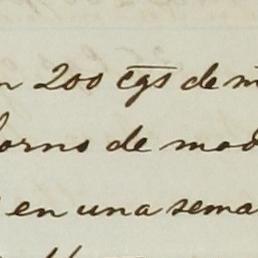 n 200 cgs de m
orno de mod
en una sema